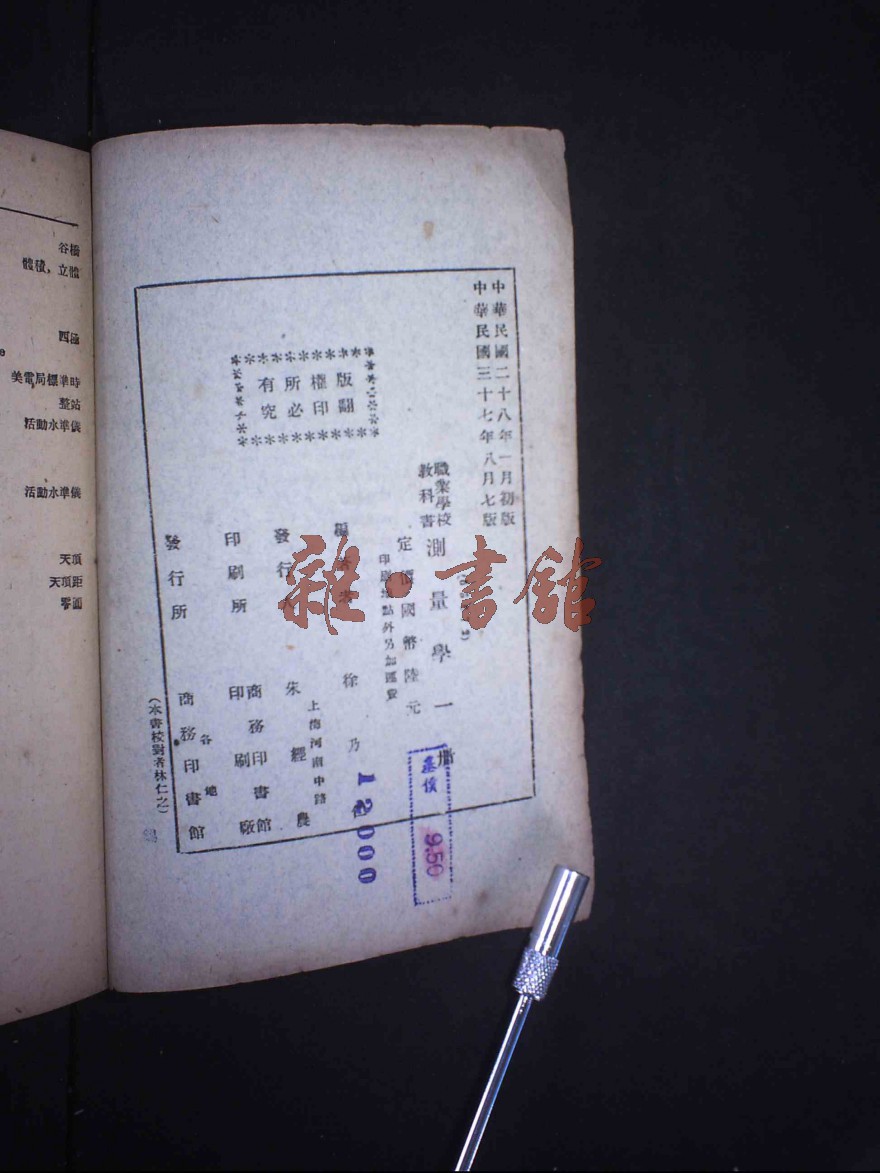 中華民國二十八年一月初版
中華民國三十七年八月七版
職業學校
教科書
測量學一冊
定價國幣陸元
印刷地點外另加運費
版權所有
翻印必究
編著者
徐乃
發行人
朱經農
上海河南中路
印刷所
商務印書館
印刷廠
發行所
各地
商務印書館
(本書校對者林仁之)
基價
9.50
12000
雜·書館
谷橋
體積,立體
四極
美電局標準時
整站
活動水準儀
活動水準儀
天頂
天頂距
零圓